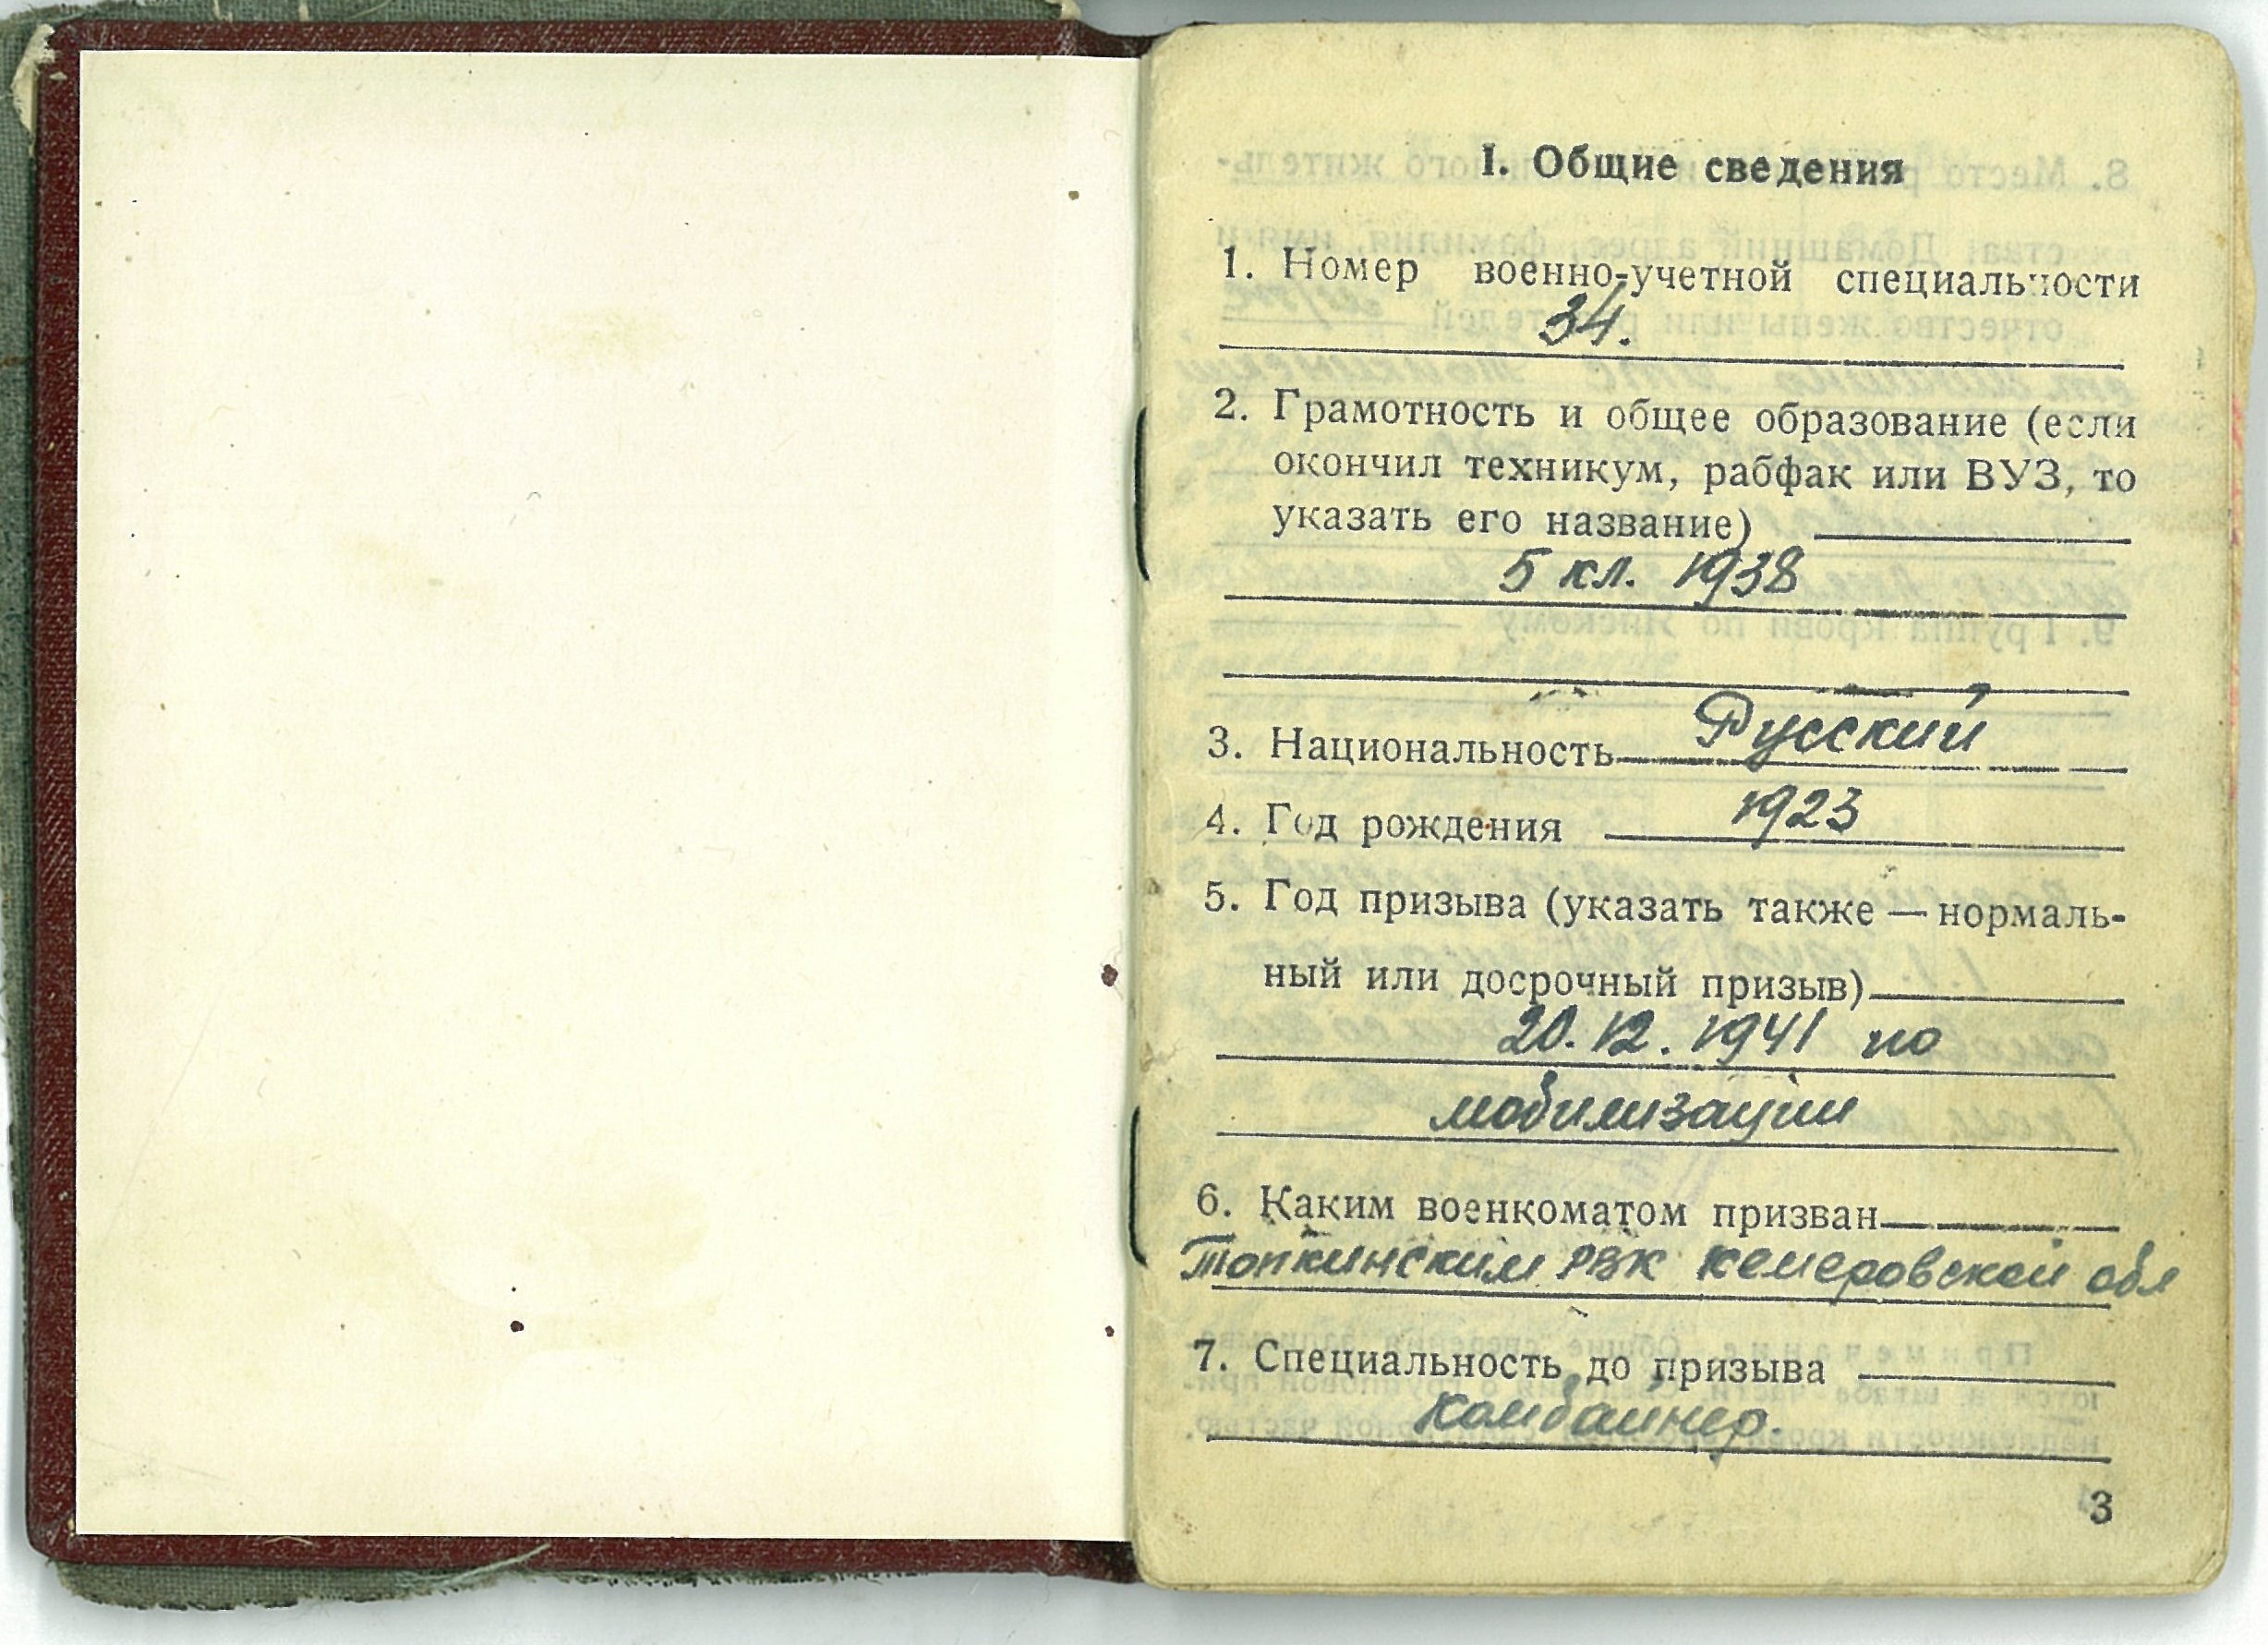 I. Общие сведения
1. Номер военно-учетной специальности
34.
2. Грамотность и общее образование (если
окончил техникум, рабфак или ВУЗ, то
указать его название)
5 кл. 1938
3. Национальность Русский
4. Год рождения 1923
5. Год призыва (указать также — нормаль-
ный или досрочный призыв)
20.12.1941 по
мобилизации
6. Каким военкоматом призван
Топкинским РВК Кемеровской обл
7. Специальность до призыва
Комбайнер.
3